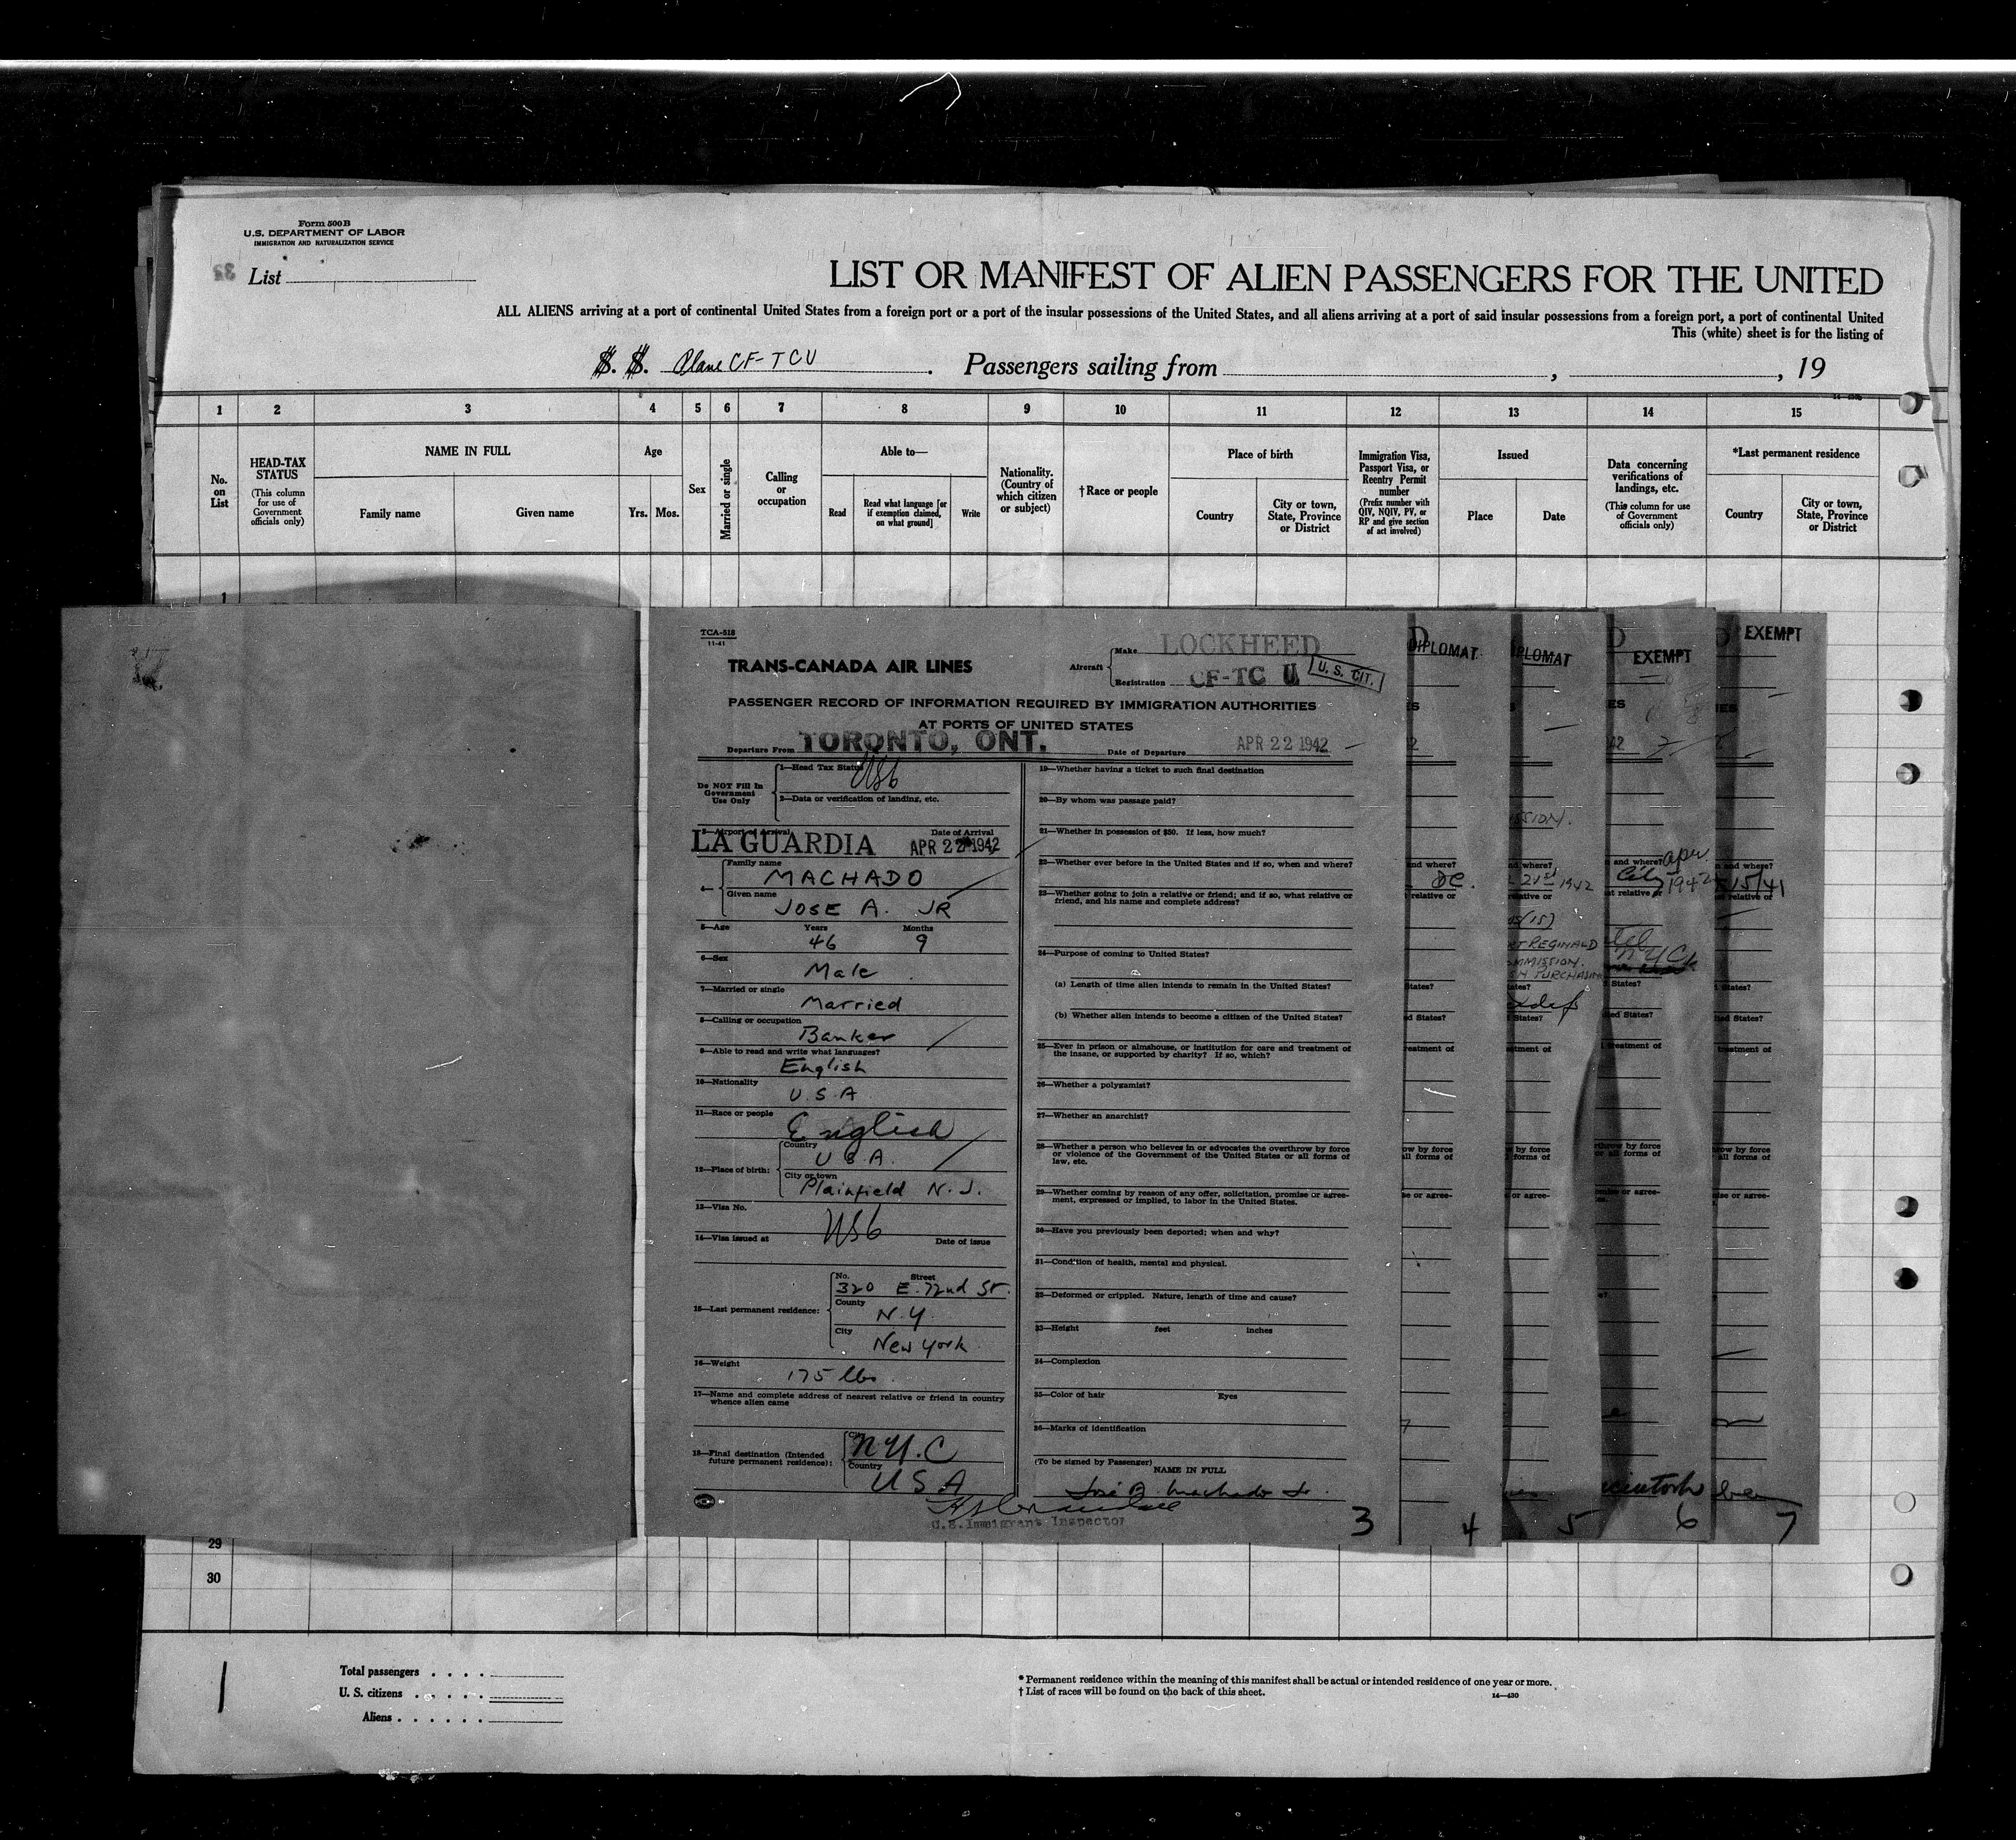 Form 500B
U.S. DEPARTMENT OF LABOR
IMMIGRATION AND NATURALIZATION SERVICE
List
LIST OR MANIFEST OF ALIEN PASSENGERS FOR THE UNITED
ALL ALIENS arriving at a port of continental United States from a foreign port or a port of the insular possessions of the United States, and all aliens arriving at a port of said insular possessions from a foreign port, a port of continental United
This (white) sheet is for the listing of
S. S. Plane CF-TCU. Passengers sailing from , , 19
1 2 3 4 5 6 7 8 9 10 11 12 13 14 15
No. on List
HEAD-TAX STATUS
(This column for use of Government officials only)
NAME IN FULL
Family name
Given name
Age
Yrs. Mos.
Sex
Married or single
Calling or occupation
Able to—
Read
Read what language [or if exemption claimed, on what ground]
Write
Nationality. (Country of which citizen or subject)
†Race or people
Place of birth
Country
City or town, State, Province or District
Immigration Visa, Passport Visa, or Reentry Permit number
(Prefix number with QIV, NQIV, PV, or RP and give section of act involved)
Issued
Place
Date
Data concerning verifications of landings, etc.
(This column for use of Government officials only)
*Last permanent residence
Country
City or town, State, Province or District
1
TCA-518
11-41
TRANS-CANADA AIR LINES
Aircraft
Make LOCKHEED
Registration CF-TC U
U. S. CIT.
PASSENGER RECORD OF INFORMATION REQUIRED BY IMMIGRATION AUTHORITIES
AT PORTS OF UNITED STATES
Departure From TORONTO, ONT.
Date of Departure APR 22 1942
Do NOT Fill In Government Use Only
1—Head Tax Status
2—Data or verification of landing, etc.
3—Airport of Arrival
Date of Arrival
LA GUARDIA APR 22 1942
4—
Family name
MACHADO
Given name
JOSE A. JR
5—Age
Years 46
Months 9
6—Sex
Male
7—Married or single
Married
8—Calling or occupation
Banker
9—Able to read and write what languages?
English
10—Nationality
U.S.A
11—Race or people
English
12—Place of birth:
Country
U S A.
City or town
Plainfield N.J.
13—Visa No.
14—Visa issued at
Date of issue
15—Last permanent residence:
No. Street
320 E. 72nd St.
County
N.Y.
City
New York
16—Weight
175 lbs.
17—Name and complete address of nearest relative or friend in country whence alien came
18—Final destination (Intended future permanent residence):
City
N.Y.C
Country
U S A
U.S. Immigrant Inspector
19—Whether having a ticket to such final destination
20—By whom was passage paid?
21—Whether in possession of $50. If less, how much?
22—Whether ever before in the United States and if so, when and where?
23—Whether going to join a relative or friend; and if so, what relative or friend, and his name and complete address?
24—Purpose of coming to United States?
(a) Length of time alien intends to remain in the United States?
(b) Whether alien intends to become a citizen of the United States?
25—Ever in prison or almshouse, or institution for care and treatment of the insane, or supported by charity? If so, which?
26—Whether a polygamist?
27—Whether an anarchist?
28—Whether a person who believes in or advocates the overthrow by force or violence of the Government of the United States or all forms of law, etc.
29—Whether coming by reason of any offer, solicitation, promise or agreement, expressed or implied, to labor in the United States.
30—Have you previously been deported; when and why?
31—Condition of health, mental and physical.
32—Deformed or crippled. Nature, length of time and cause?
33—Height feet inches
34—Complexion
35—Color of hair Eyes
36—Marks of identification
(To be signed by Passenger)
NAME IN FULL
José A. Machado Jr.
3
DIPLOMAT
4
PLOMAT
21st 1942
REGINALD
MMISSION.
PURCHASIN
5
EXEMPT
City 1942
6
EXEMPT
15/41
7
29
30
Total passengers
U. S. citizens
Aliens
* Permanent residence within the meaning of this manifest shall be actual or intended residence of one year or more.
† List of races will be found on the back of this sheet.
14—430